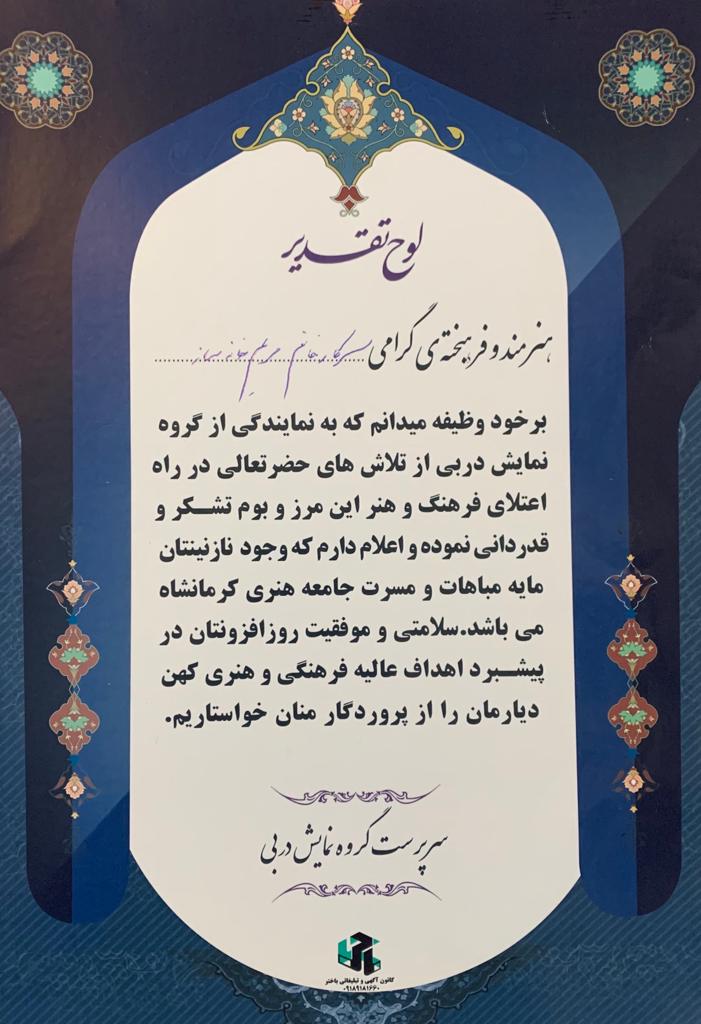 لوح تقدیر
هنرمند و فرهیخته‌ی گرامی سرکار خانم مریم
بر خود وظیفه میدانم که به نمایندگی از گروه
نمایش دربی از تلاش های حضرتعالی در راه
اعتلای فرهنگ و هنر این مرز و بوم تشکر و
قدردانی نموده و اعلام دارم که وجود نازنینتان
مایه مباهات و مسرت جامعه هنری کرمانشاه
می باشد.سلامتی و موفقیت روزافزونتان در
پیشبرد اهداف عالیه فرهنگی و هنری کهن
دیارمان را از پروردگار منان خواستاریم.
سرپرست گروه نمایش دربی
کانون آگهی و تبلیغاتی باختر
۰۹۱۸۹۱۸۱۶۶۰